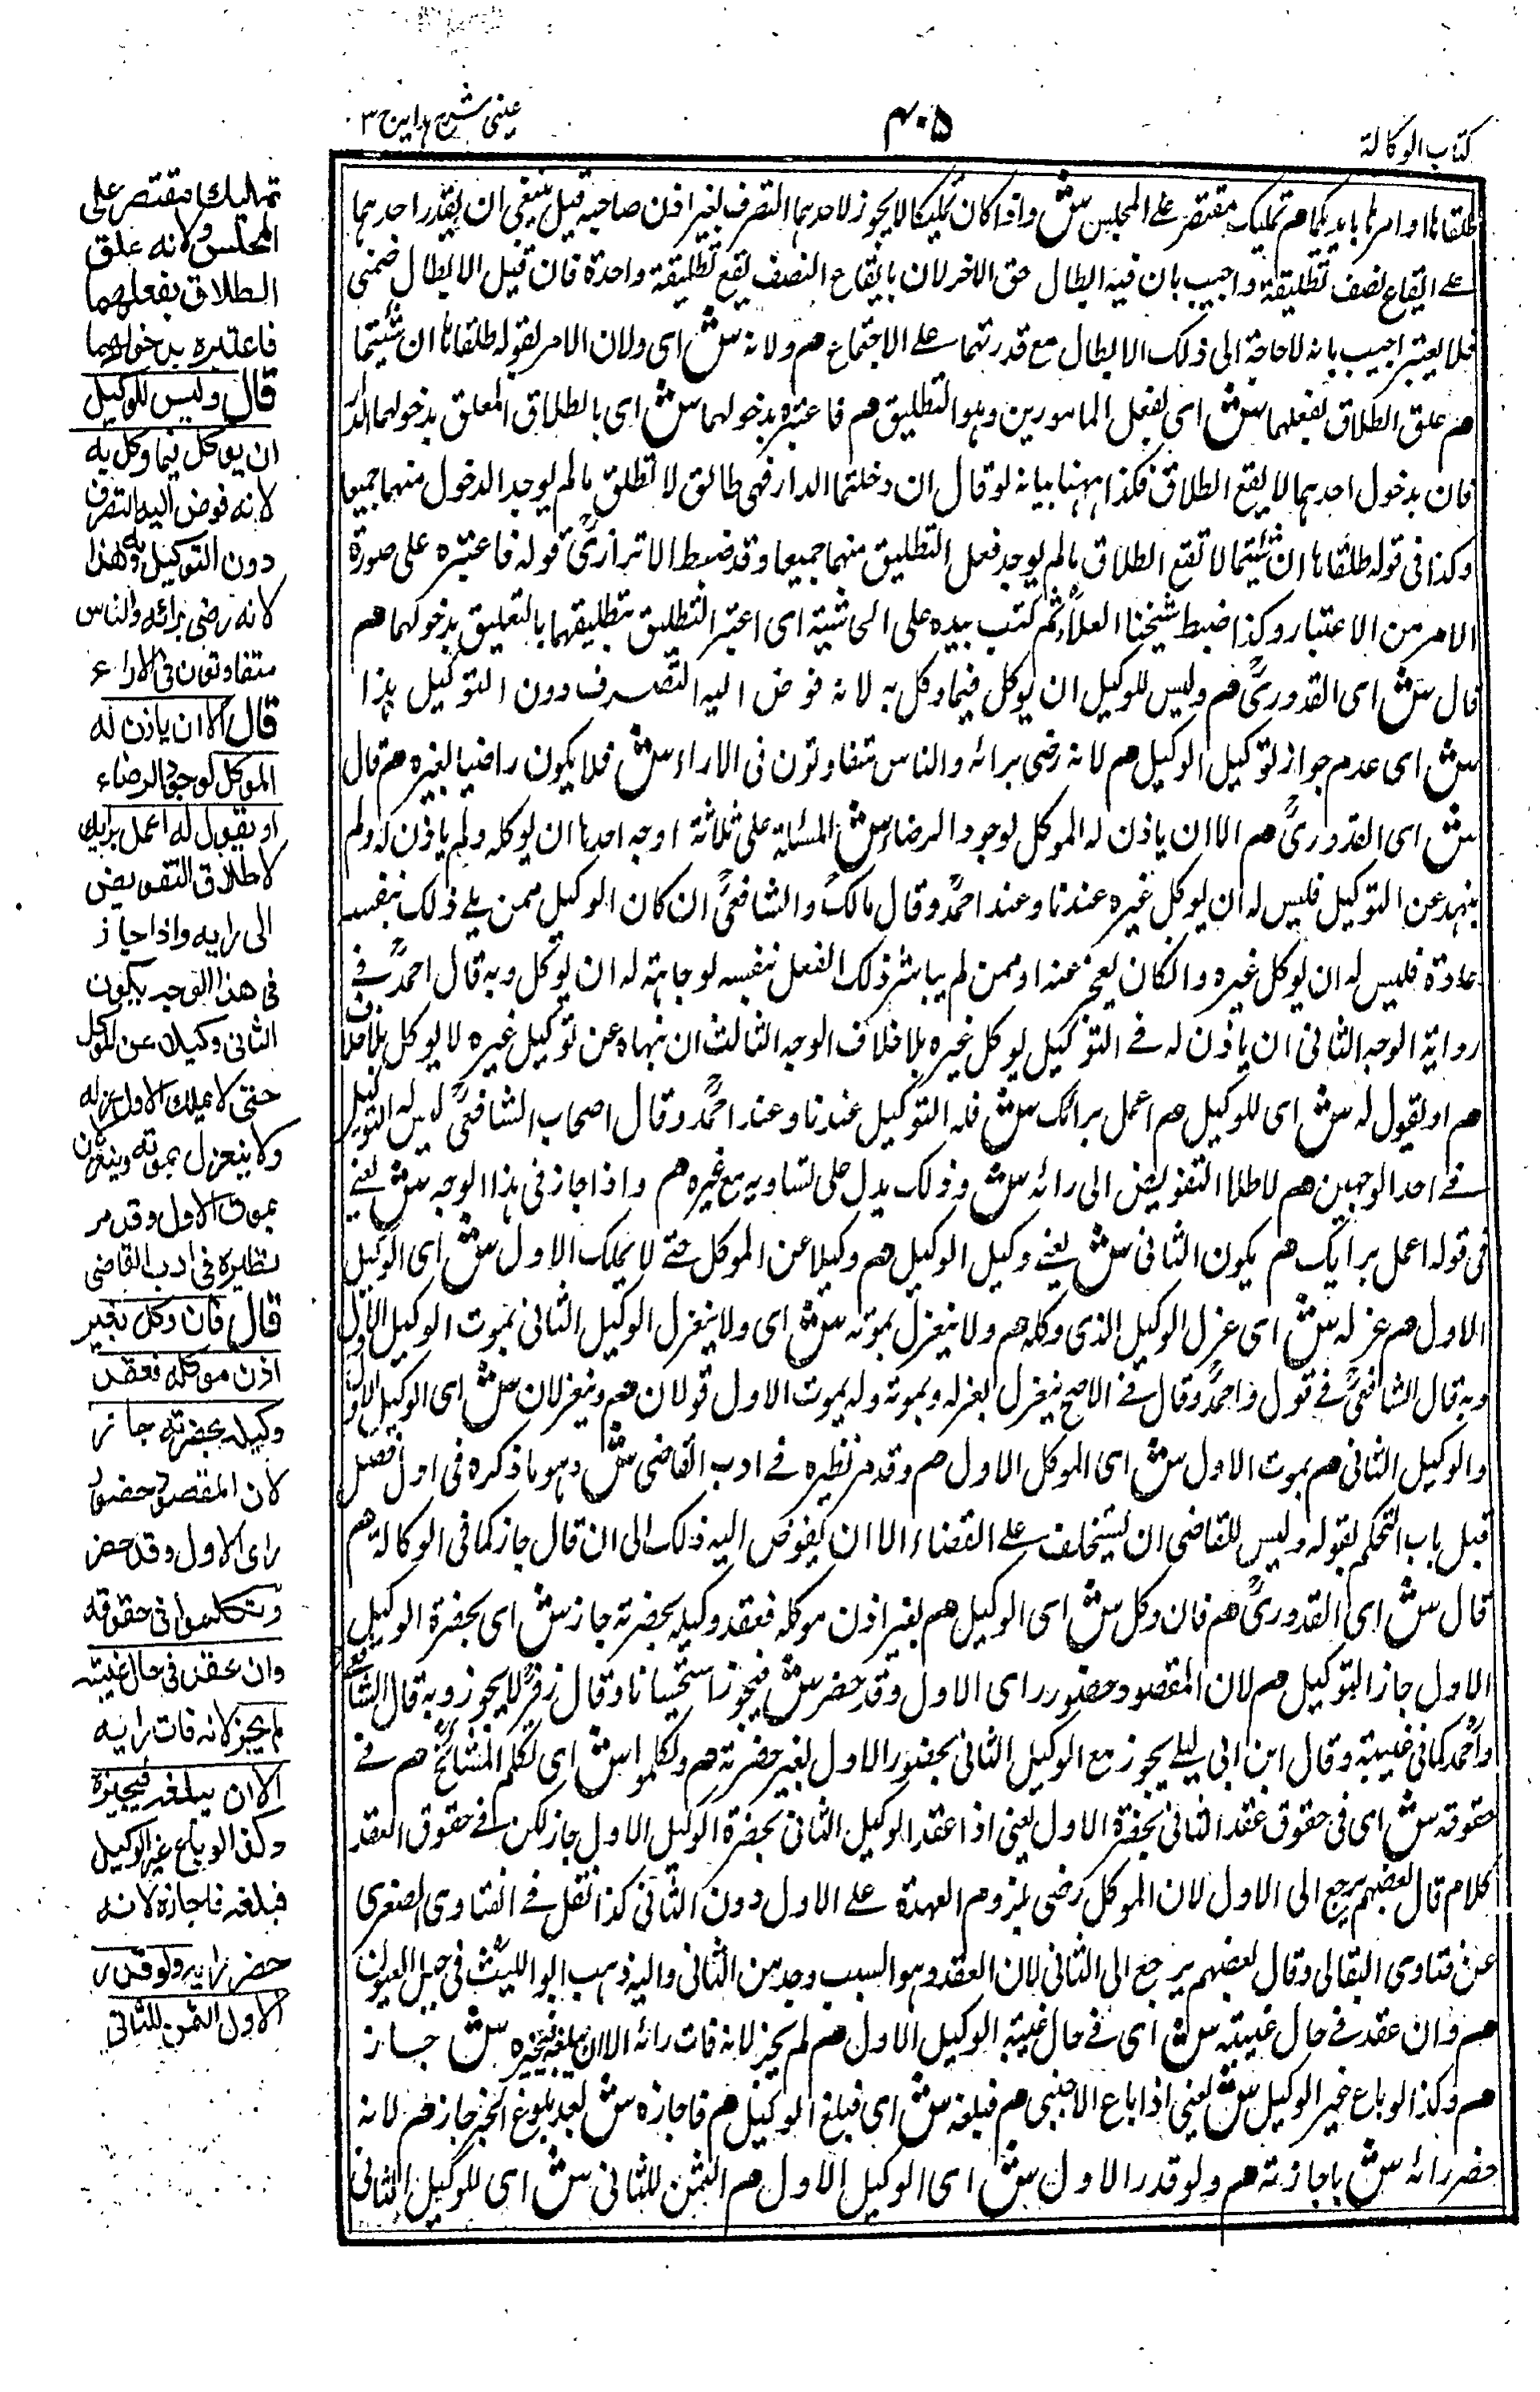 كتاب الوكالة
۴۰۵
عینی شرح هداية ج ۳
طلقاها او امرها بايديكما هم تمليك مقتصر على المجلس ش واذا كان تمليكا لا يجوز لاحدهما التصرف بغير اذن صاحبه قيل ينبغي ان يقدر احدهما
على ايقاع نصف تطليقة واجيب بان فيه ابطال حق الاخر لان بايقاع النصف يقع تطليقة واحدة فان قيل الابطال ضمنی
فلا يعتبر اجيب بانه لا حاجة الى ذلك الابطال مع قدرتهما على الاجتماع هم ولانه ش اى ولان الامر بقوله طلقاها ان شئتما
هم علق الطلاق بفعلهما ش اى بفعل المامورين وهو التطليق هم فاعتبره بدخولهما ش اى بالطلاق المعلق بدخولهما الدار
فان بدخول احدهما لا يقع الطلاق فكذا ههنا بيانه لو قال ان دخلتما الدار فهى طالق لا تطلق ما لم يوجد الدخول منهما جميعا
وكذا فى قوله طلقاها ان شئتما لا تقع الطلاق ما لم يوجد فعل التطليق منهما جميعا وقد ضبط الاترازى قوله فاعتبره على صورة
الامر من الاعتبار وكذا ضبط شيخنا العلاء ثم كتب بيده على الحاشية اى اعتبر التطليق بتطليقهما بالتعليق بدخولهما هم
قال ش اى القدورى هم وليس للوكيل ان يوكل فيما وكل به لانه فوض اليه التصرف دون التوكيل بهذا
ش اى عدم جواز توكيل الوكيل هم لانه رضى برائه والناس متفاوتون فى الاراء ش فلا يكون راضيا بغيره هم قال
ش اى القدورى هم الا ان ياذن له الموكل لوجود الرضاء ش المسئلة على ثلاثة اوجه احدها ان يوكله ولم ياذن له ولم
ينهه عن التوكيل فليس له ان يوكل غيره عندنا وعند احمد وقال مالك والشافعى ان كان الوكيل ممن يلى ذلك بنفسه
عادة فليس له ان يوكل غيره وان كان يعجز عنه او ممن لم يباشر ذلك الفعل بنفسه لوجاهته له ان يوكل وبه قال احمد فى
رواية الوجه الثانى ان ياذن له فى التوكيل يوكل غيره بلا خلاف الوجه الثالث ان نهاه عن توكيل غيره لا يوكل بلا خلاف
هم او يقول له ش اى للوكيل هم اعمل برائك ش فله التوكيل عندنا وعند احمد وقال اصحاب الشافعى ليس له التوكيل
فى احد الوجهين هم لاطلاق التفويض الى رائه ش وذلك يدل على تساويه مع غيره هم واذا جاز فى هذا الوجه ش يعنى
فى قوله اعمل برايك هم يكون الثانى ش يعنى وكيل الوكيل هم وكيلا عن الموكل حتى لا يملك الاول ش اى الوكيل
الاول هم عزله ش اى عزل الوكيل الذى وكله هم ولا ينعزل بموته ش اى ولا ينعزل الوكيل الثانى بموت الوكيل الاول
وبه قال الشافعى فى قول واحمد وقال فى الاصح ينعزل بعزله وبموته وله بموت الاول قولان هم وينعزلان ش اى الوكيل الاول
والوكيل الثانى هم بموت الاول ش اى الموكل الاول هم وقد مر نظيره فى ادب القاضى ش وهو ما ذكره فى اول فصل
قبل باب التحكيم بقوله وليس للقاضى ان يستخلف على القضاء الا ان يفوض اليه ذلك الى ان قال جاز كما فى الوكالة هم
قال ش اى القدورى هم فان وكل ش اى الوكيل هم بغير اذن موكله فعقد وكيله بحضرته جاز ش اى بحضرة الوكيل
الاول جاز التوكيل هم لان المقصود حضور راى الاول وقد حضر ش فيجوز استحسانا وقال زفر لا يجوز وبه قال الشافعى
واحمد كما فى غيبته وقال ابن ابى ليلى يجوز مع الوكيل الثانى بحضور الاول بغير حضرته هم وتكلموا ش اى تكلم المشائخ هم فى
حقوقه ش اى فى حقوق عقد الثانى بحضرة الاول يعنى اذا عقد الوكيل الثانى بحضرة الوكيل الاول جاز لكن فى حقوق العقد
كلام قال بعضهم يرجع الى الاول لان الموكل رضى بلزوم العهدة على الاول دون الثانى كذا نقل فى الفتاوى الصغرى
عن فتاوى البقالى وقال بعضهم يرجع الى الثانى لان العقد وهو السبب وجد من الثانى واليه ذهب ابو الليث فى حيل العيون
هم وان عقد فى حال غيبته ش اى فى حال غيبة الوكيل الاول هم لم يجز لانه فات رائه الا ان يبلغه فيجيزه ش جاز
هم وكذا لو باع غير الوكيل ش يعنى اذا باع الاجنبى هم فبلغه ش اى فبلغ الوكيل هم فاجازه ش بعد بلوغ الخبر جاز هم لانه
حضر رائه ش باجازته هم ولو قدر الاول ش اى الوكيل الاول هم الثمن للثانى ش اى للوكيل الثانى
تمليك مقتصر على
المجلس ولانه علق
الطلاق بفعلهما
فاعتبره بدخولهما
قال وليس للوكيل
ان يوكل فيما وكل به
لانه فوض اليه التصرف
دون التوكيل به وهذا
لانه رضى برائه والناس
متفاوتون فى الاراء
قال الا ان ياذن له
الموكل لوجود الرضاء
او يقول له اعمل برايك
لاطلاق التفويض
الى رايه واذا جاز
فى هذا الوجه يكون
الثانى وكيلا عن الموكل
حتى لا يملك الاول عزله
ولا ينعزل بموته وينعزلان
بموت الاول وقد مر
نظيره فى ادب القاضى
قال فان وكل بغير
اذن موكله فعقد
وكيله بحضرته جاز
لان المقصود حضور
راى الاول وقد حضر
وتكلموا فى حقوقه
وان عقد فى حال غيبته
لم يجز لانه فات رايه
الا ان يبلغه فيجيزه
وكذا لو باع غير الوكيل
فبلغه فاجازه لانه
حضر رايه ولو قدر
الاول الثمن للثانى